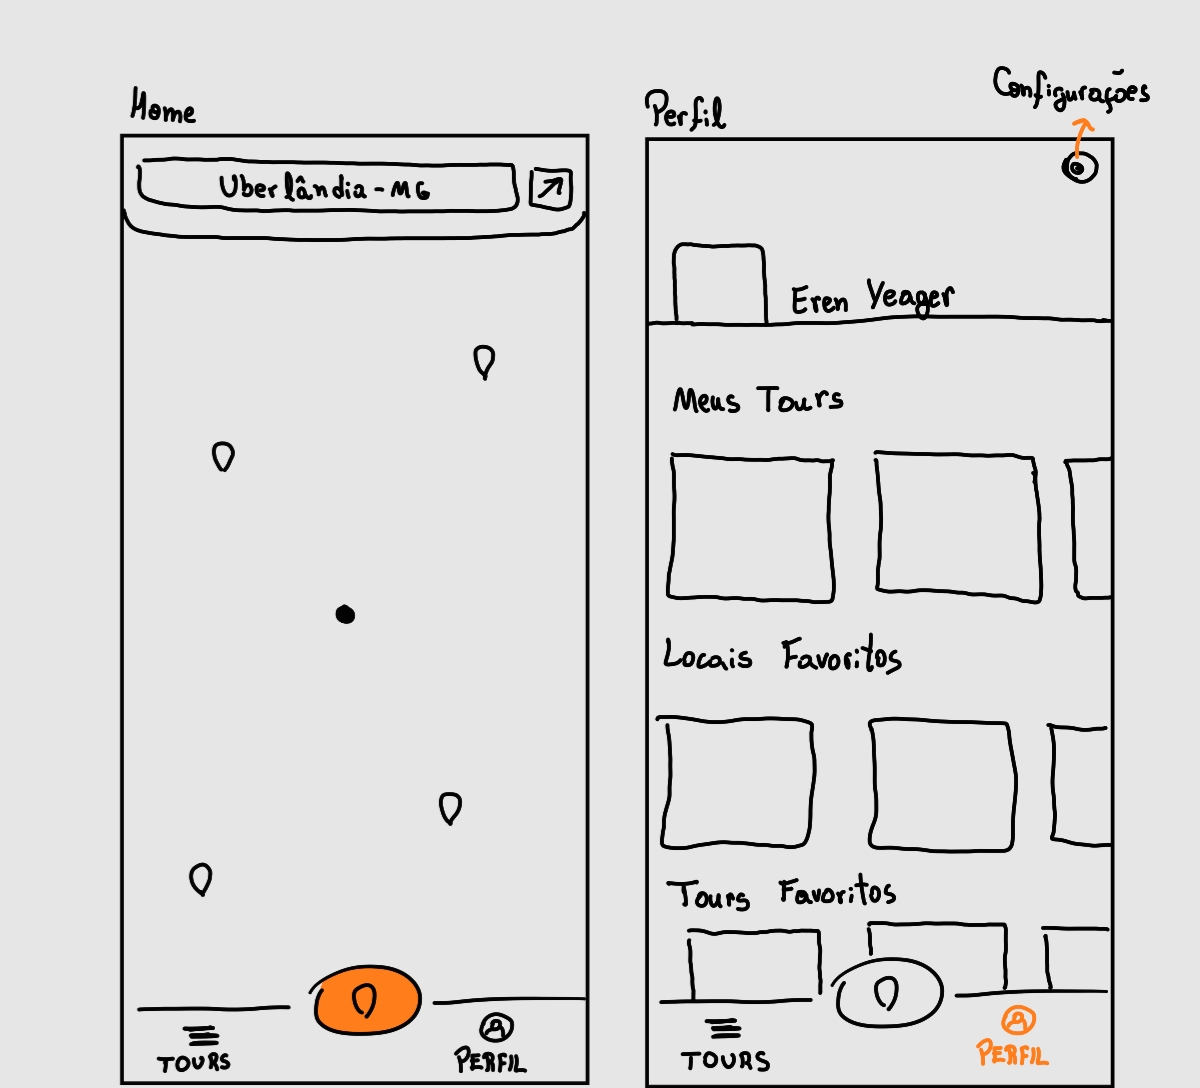 Home
Uberlândia - MG
TOURS
PERFIL
Configurações
Perfil
Eren Yeager
Meus Tours
Locais Favoritos
Tours Favoritos
TOURS
PERFIL